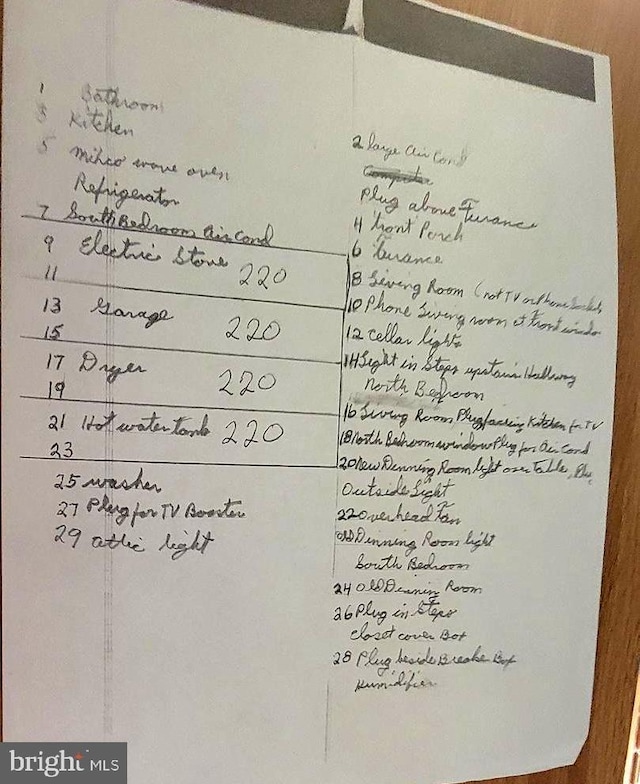 1 Bathroom
3 Kitchen
5 Mihco wave oven
Refrigerator
7 South Bedroom Air Cond
9 Electric Stove
11
220
13 Garage
15
220
17 Dryer
19
220
21 Hot water tank
23
220
25 washer
27 Plug for TV Booster
29 attic light
2 large Air Cond
Plug above Furance
4 Front Porch
6 Furance
8 Living Room (not TV or Phone
10 Phone Living room at Front window
12 cellar lights
14 Light in Steps upstairs Hallway
North Bedroom
16 Living Room Plug facing Kitchen for TV
18 North Bedroom window Plug for Air Cond
20 New Denning Room light over Table
Outside Light
22 overhead Fan
Old Denning Room light
South Bedroom
24 Old Denning Room
26 Plug in Steps
closet cover Box
28 Plug beside Breake Box
Humidifier
bright MLS